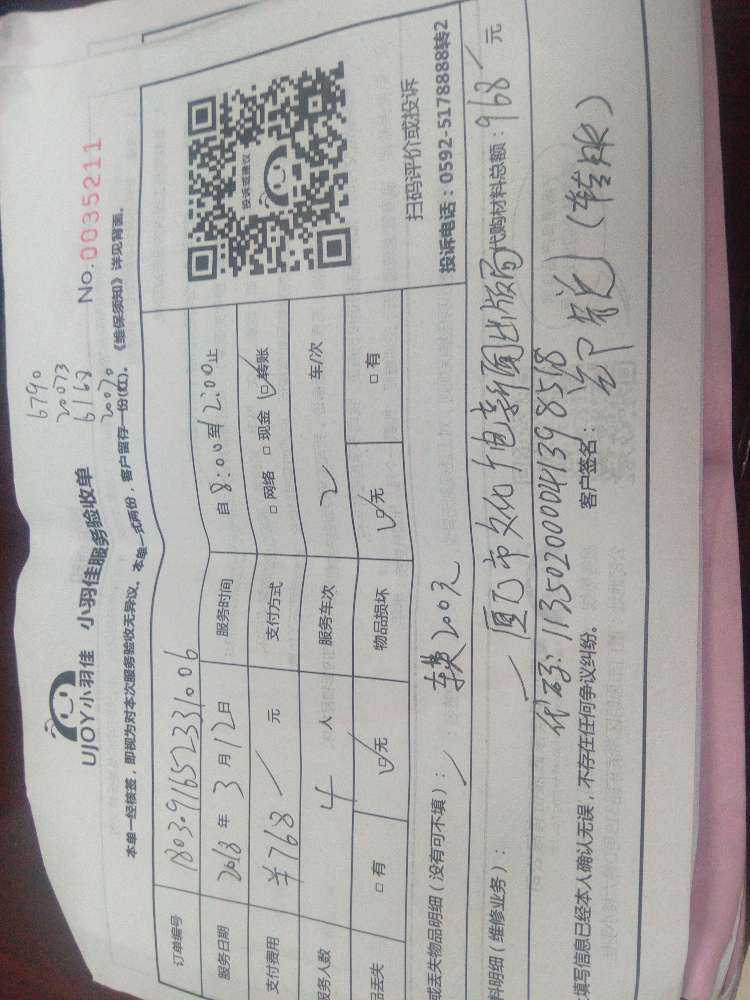 6790
20073
6168
20070
UJOY小羽佳 小羽佳服务验收单 No.0035211
本单一经核签，即视为对本次服务验收无异议。本单一式两份，客户留存一份(红)。《维保须知》详见背面。
订单编号 1803091652331006
服务日期 2018 年 3 月 12 日 服务时间 自 8:00 至 12:00 止
支付费用 ¥768 元 支付方式 □ 网络 □ 现金 ☑ 转账
服务人数 4 人 服务车次 2 车/次
品丢失 □ 有 ☑ 无 物品损坏 ☑ 无 □ 有
投诉或建议
扫码评价或投诉
投诉电话：0592-5178888转2
或丢失物品明细（没有可不填）： 车费200元
料明细（维修业务）： 厦门市文化广电新闻出版局 代购材料总额：968 元
代码：11350200004139851B
填写信息已经本人确认无误，不存在任何争议纠纷。 客户签名： （转账）